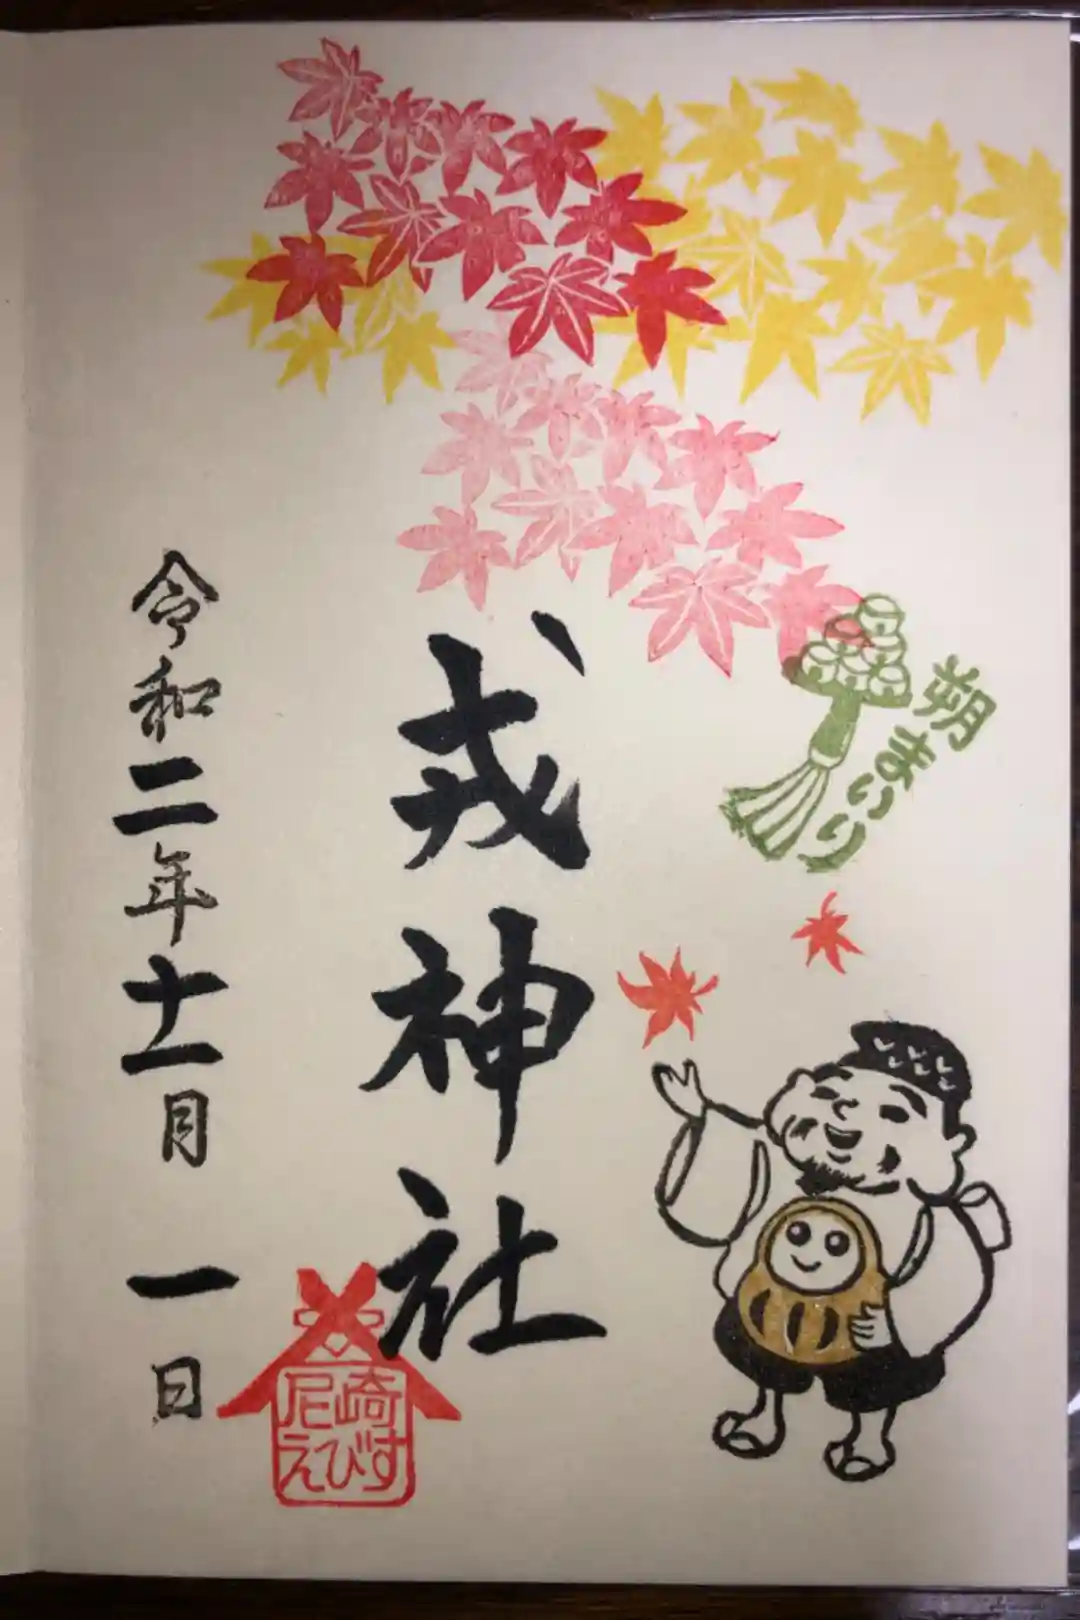 朔まいり
戎神社
尼崎
えびす
令和二年十一月一日